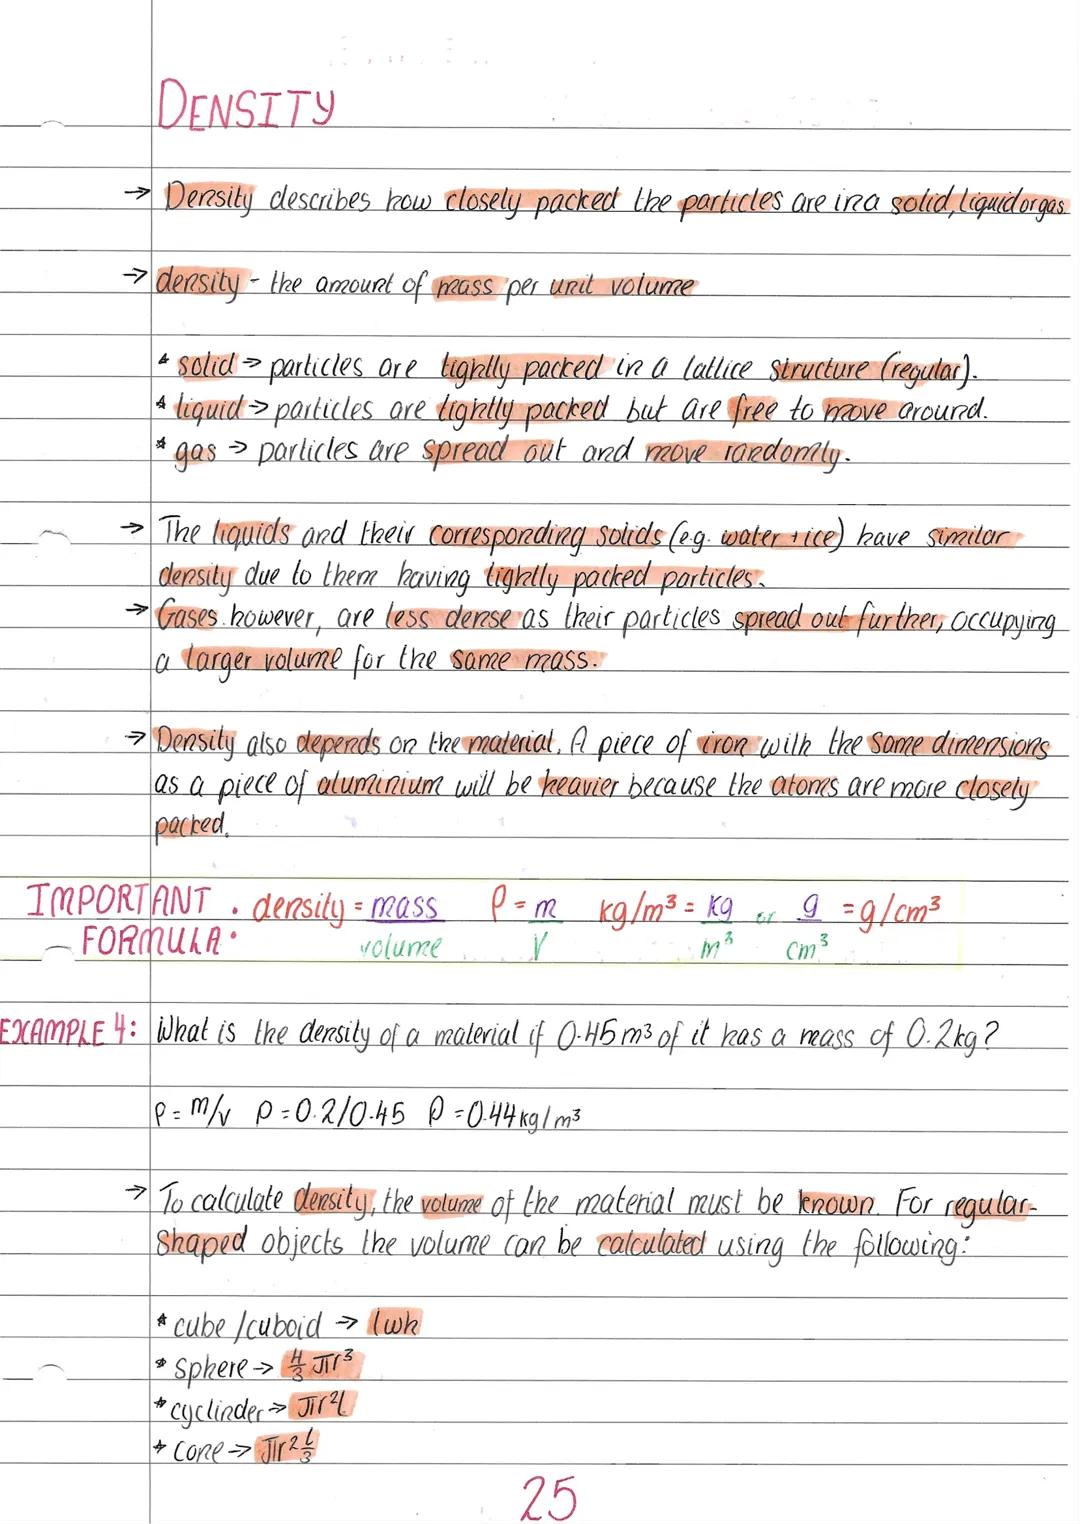 DENSITY
→ Density describes how closely packed the particles are in a solid, liquid or gas
→ density - the amount of mass per unit volume
* solid → particles are tightly packed in a lattice structure (regular).
* liquid → particles are tightly packed but are free to move around.
* gas → particles are spread out and move randomly.
→ The liquids and their corresponding solids (e.g. water + ice) have similar
density due to them having tightly packed particles.
→ Gases however, are less dense as their particles spread out further, occupying
a larger volume for the same mass.
→ Density also depends on the material. A piece of iron with the same dimensions
as a piece of aluminium will be heavier because the atoms are more closely
packed.
IMPORTANT FORMULA: density = mass/volume ρ = m/V kg/m³ = kg/m³ or g/cm³ = g/cm³
EXAMPLE 4: What is the density of a material if 0.45m³ of it has a mass of 0.2kg?
ρ = m/v ρ = 0.2/0.45 ρ = 0.44kg/m³
→ To calculate density, the volume of the material must be known. For regular-
shaped objects the volume can be calculated using the following:
* cube/cuboid → lwh
* sphere → 4/3 πr³
* cyclinder → πr²l
* cone → πr² l/3
25